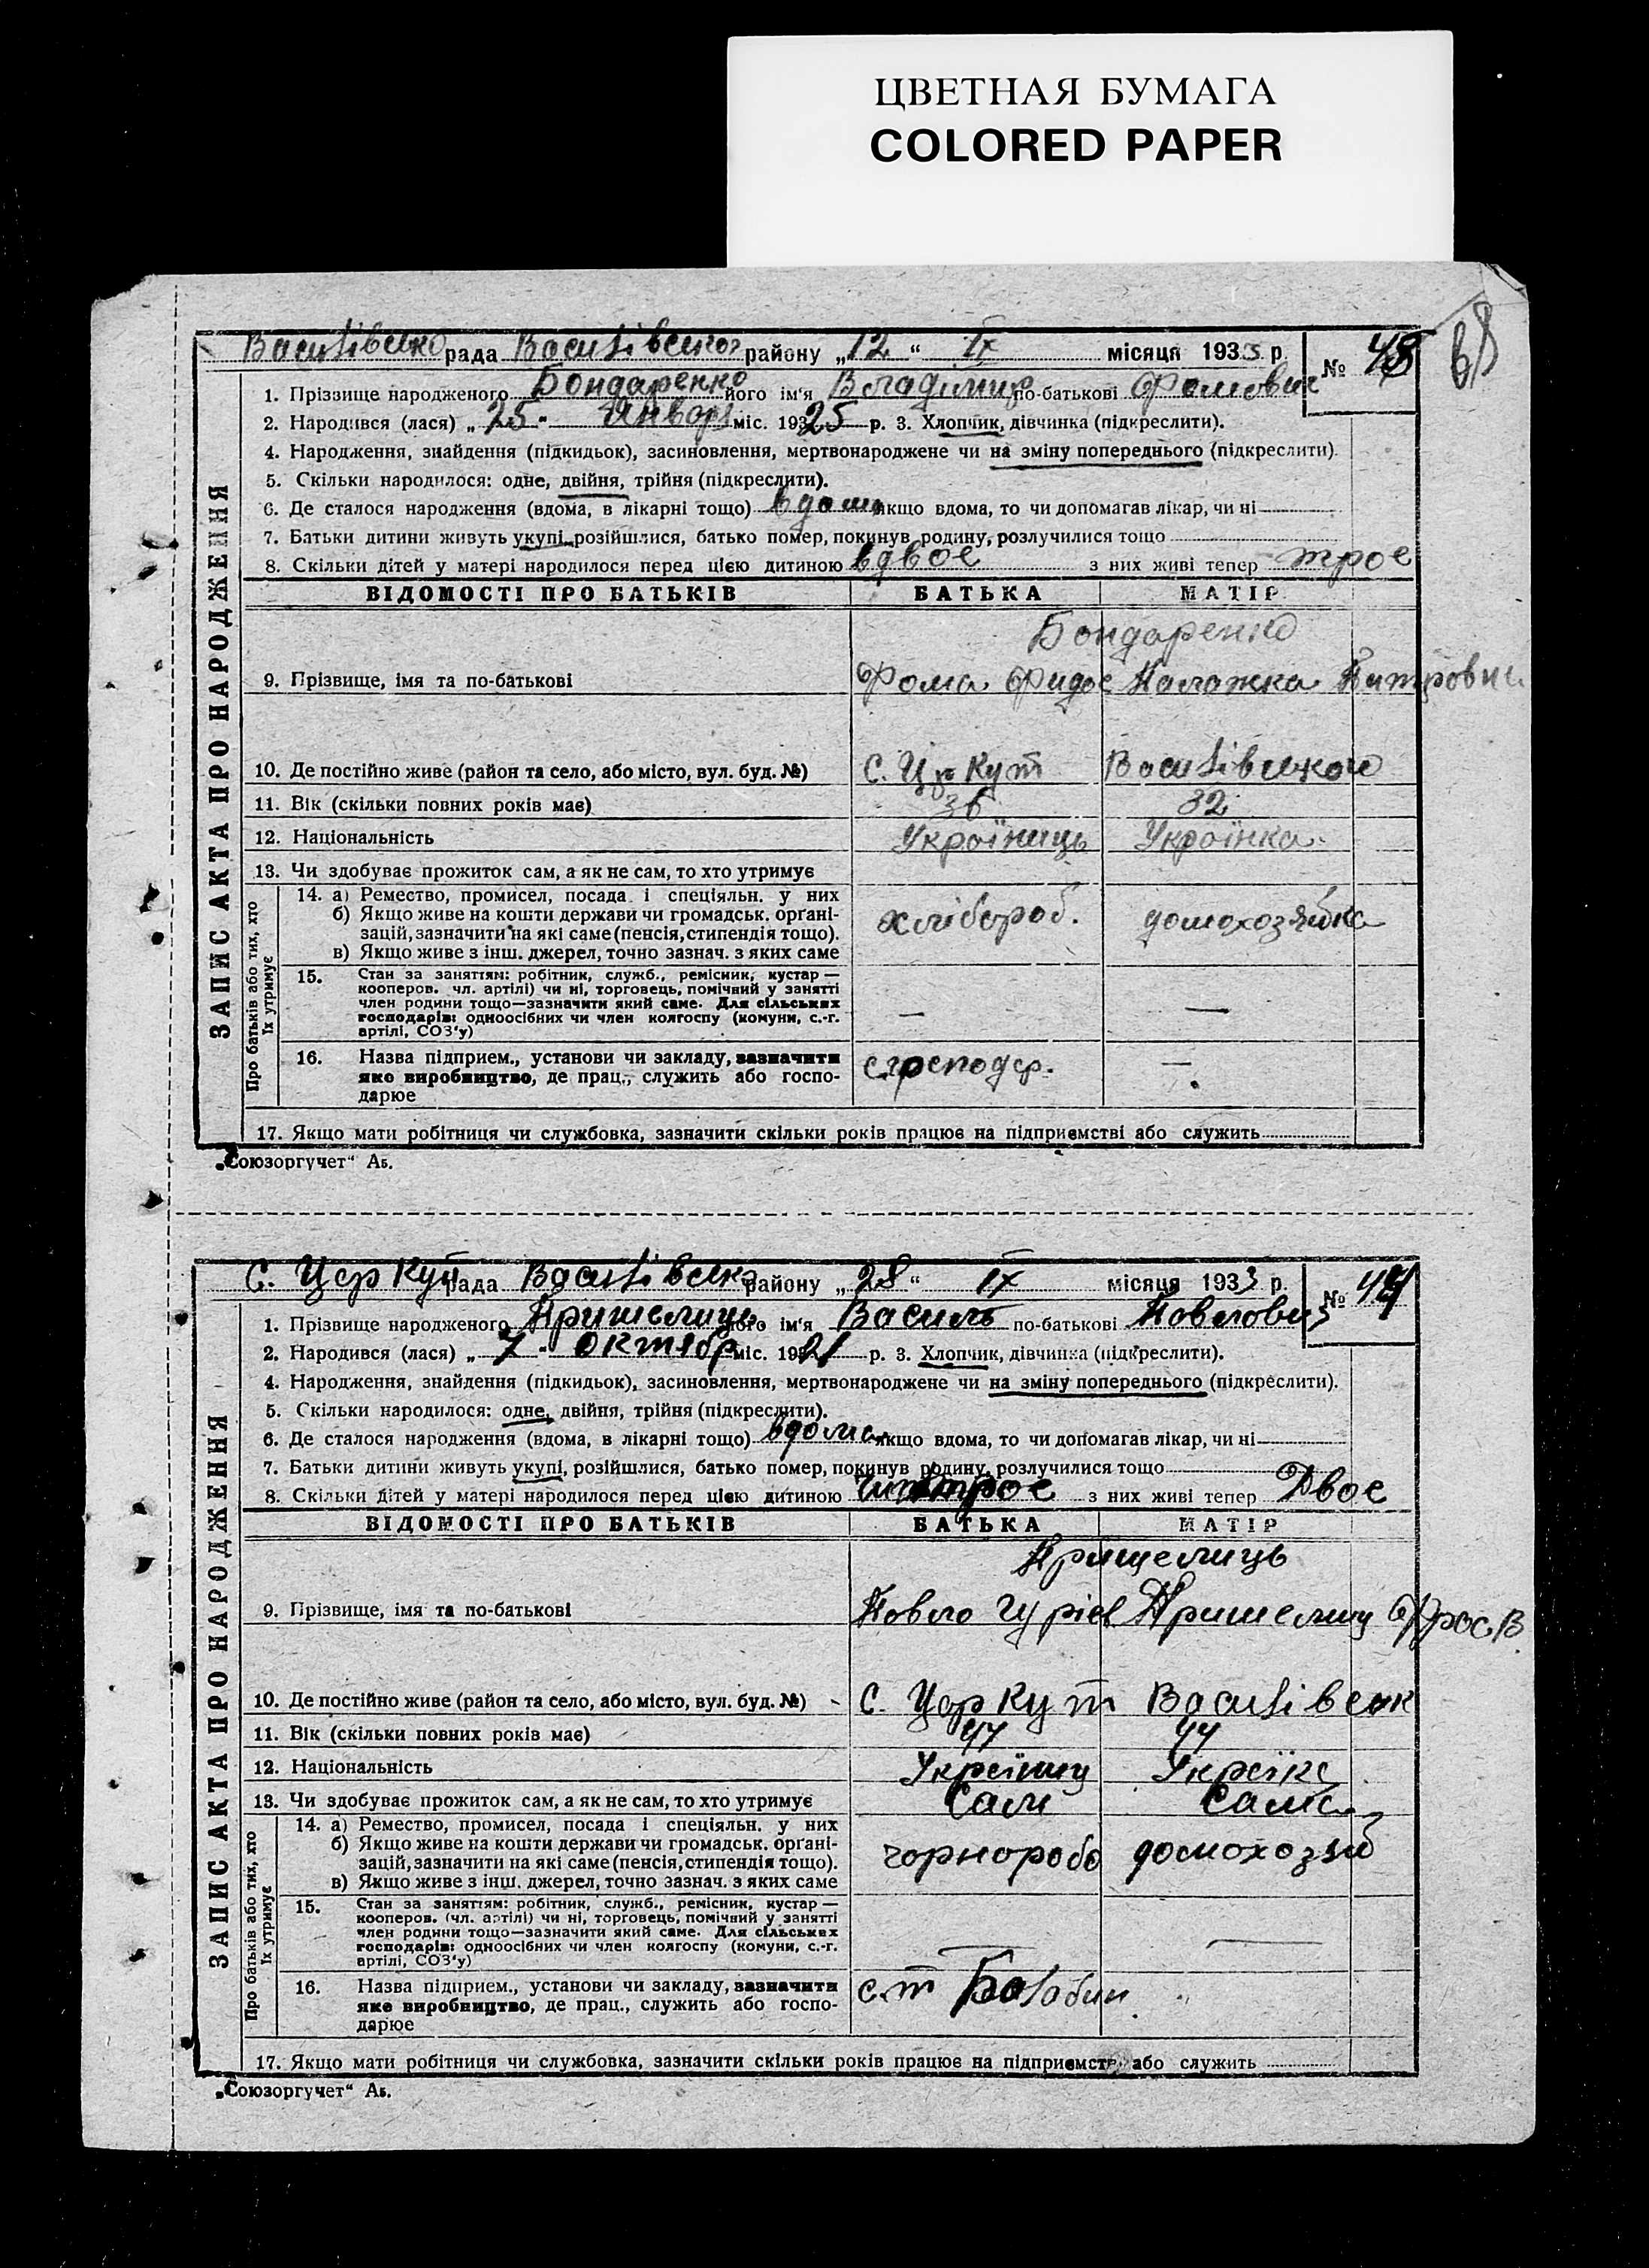 ЦВЕТНАЯ БУМАГА
COLORED PAPER
рада району „12“ IX місяця 1933 р. № 48
68
1. Прізвище народженого Бондаренко його ім'я Владімир по-батькові Фомович
2. Народився (лася) „25“ Январ міс. 1925 р. 3. Хлопчик, дівчинка (підкреслити).
4. Народження, знайдення (підкидьок), засиновлення, мертвонароджене чи на зміну попереднього (підкреслити).
5. Скільки народилося: одне, двійня, трійня (підкреслити).
6. Де сталося народження (вдома, в лікарні тощо) вдома якщо вдома, то чи допомагав лікар, чи ні
7. Батьки дитини живуть укупі, розійшлися, батько помер, покинув родину, розлучилися тощо
8. Скільки дітей у матері народилося перед цією дитиною вдвое з них живі тепер трое
ЗАПИС АКТА ПРО НАРОДЖЕННЯ
ВІДОМОСТІ ПРО БАТЬКІВ БАТЬКА МАТІР
Бондаренко
9. Прізвище, імя та по-батькові Фома Фидос Палажка
10. Де постійно живе (район та село, або місто, вул. буд. №) С. Цр Кут
11. Вік (скільки повних років має) 36 32
12. Національність Україниць Українка
13. Чи здобуває прожиток сам, а як не сам, то хто утримує
Про батьків або тих, хто їх утримує
14. а) Ремество, промисел, посада і спеціяльн. у них
б) Якщо живе на кошти держави чи громадськ. орґані-
зацій, зазначити на які саме (пенсія, стипендія тощо). хлібороб. домохозяйка
в) Якщо живе з інш. джерел, точно зазнач. з яких саме
15. Стан за заняттям: робітник, служб., ремісник, кустар —
кооперов. чл. артілі) чи ні, торговець, помічний у занятті
член родини тощо—зазначити який саме. Для сільських
господарів: одноосібних чи член колгоспу (комуни, с.-г. — —
артілі, СОЗ'у)
16. Назва підприєм., установи чи закладу, зазначити
яке виробництво, де прац., служить або госпо- —
дарює
17. Якщо мати робітниця чи службовка, зазначити скільки років працює на підприємстві або служить
„Союзоргучет“ Аб.
С. Цар Кут рада району „28“ IX місяця 1933 р. № 49
1. Прізвище народженого Пришелиць його ім'я Василь по-батькові Повлович
2. Народився (лася) „7“ Октябр міс. 1921 р. 3. Хлопчик, дівчинка (підкреслити).
4. Народження, знайдення (підкидьок), засиновлення, мертвонароджене чи на зміну попереднього (підкреслити).
5. Скільки народилося: одне, двійня, трійня (підкреслити).
6. Де сталося народження (вдома, в лікарні тощо) вдома якщо вдома, то чи допомагав лікар, чи ні
7. Батьки дитини живуть укупі, розійшлися, батько помер, покинув родину, розлучилися тощо
8. Скільки дітей у матері народилося перед цією дитиною з них живі тепер Двое
ЗАПИС АКТА ПРО НАРОДЖЕННЯ
ВІДОМОСТІ ПРО БАТЬКІВ БАТЬКА МАТІР
Пришелиць
9. Прізвище, імя та по-батькові Повло Гурієв Пришелиц
10. Де постійно живе (район та село, або місто, вул. буд. №) С. Цар Кут
11. Вік (скільки повних років має) 47 44
12. Національність
13. Чи здобуває прожиток сам, а як не сам, то хто утримує Сам Сама
Про батьків або тих, хто їх утримує
14. а) Ремество, промисел, посада і спеціяльн. у них
б) Якщо живе на кошти держави чи громадськ. орґані-
зацій, зазначити на які саме (пенсія, стипендія тощо). чорноробо домохозяй
в) Якщо живе з інш. джерел, точно зазнач. з яких саме
15. Стан за заняттям: робітник, служб., ремісник, кустар —
кооперов. (чл. артілі) чи ні, торговець, помічний у занятті
член родини тощо—зазначити який саме. Для сільських
господарів: одноосібних чи член колгоспу (комуни, с.-г. — —
артілі, СОЗ'у)
16. Назва підприєм., установи чи закладу, зазначити
яке виробництво, де прац., служить або госпо- с.т
дарює
17. Якщо мати робітниця чи службовка, зазначити скільки років працює на підприємств або служить
„Союзоргучет“ Аб.